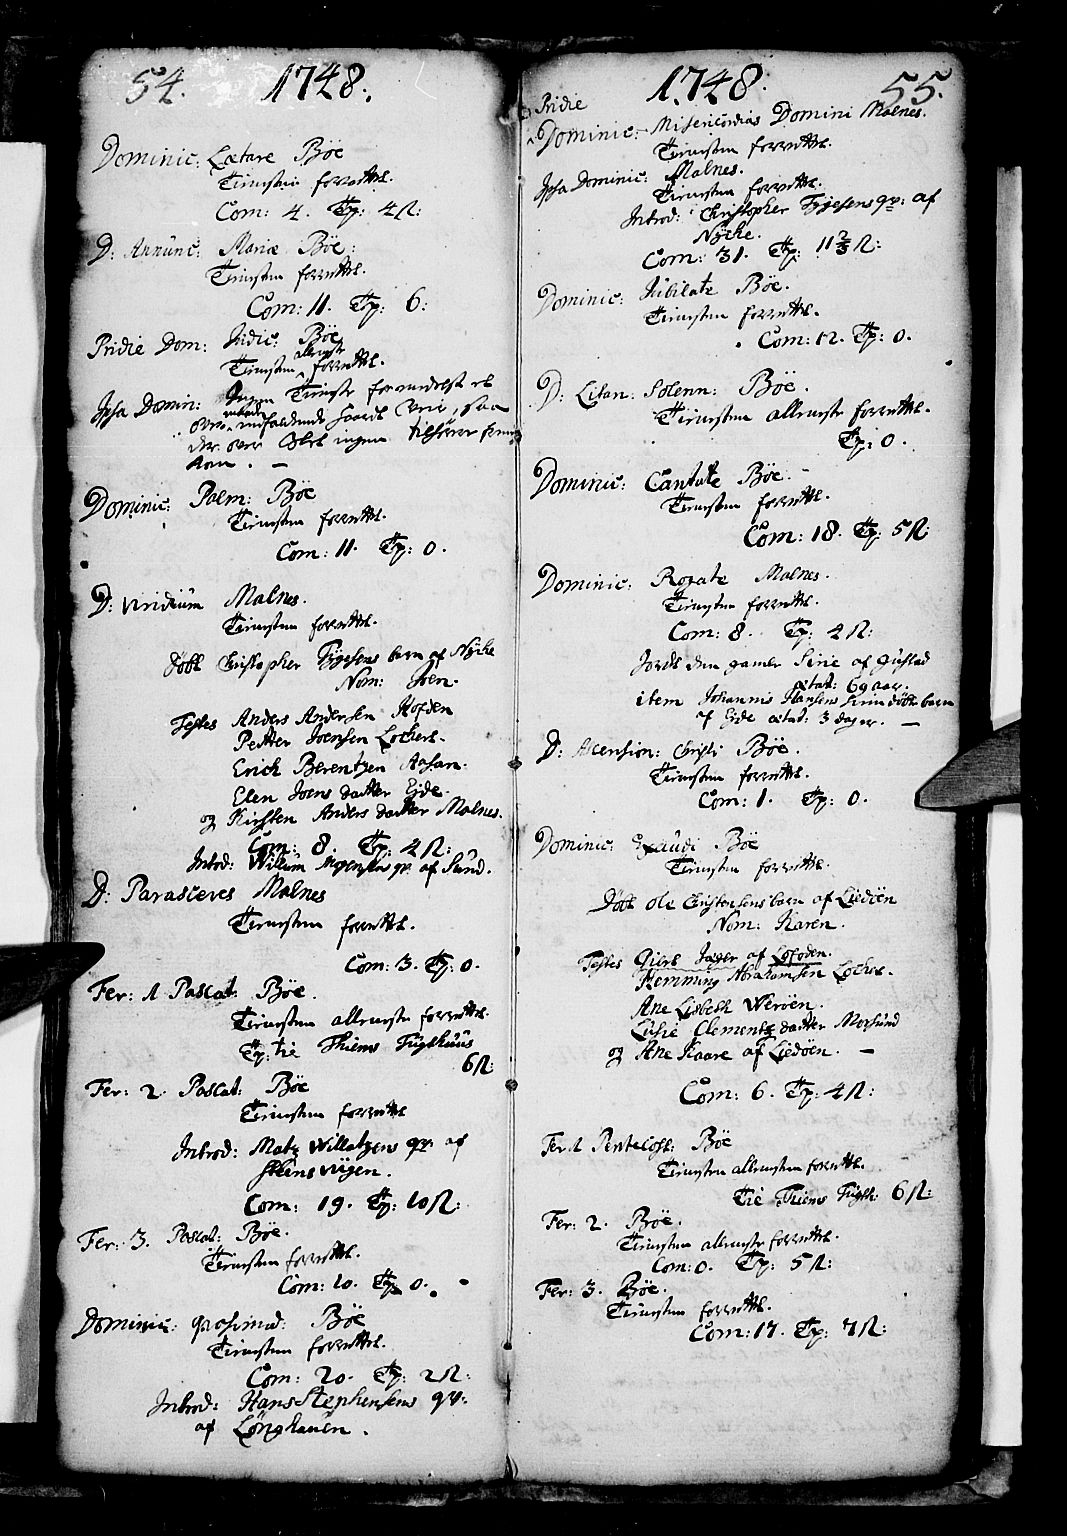 54. 1748.
Dominic: Lætare Bøe
Tienesten forrettet.
Com: 4. Tp: 4 ß:
D: Annunc: Mariæ Bøe:
Tienesten forrettet.
Com: 11. Tp: 6:
Pridie Dom: Judic: Bøe
alleeneste
Tienesten forrettet.
Ipsa Domin: Ingen Tieneste formedelst et
over indfaldende haardt Veir, saa
der over blef ingen tilhører frem
kom. —
Dominic: Palm: Bøe
Tienesten forrettet.
Com: 11. Tp: 0.
D: Viridium Malnes.
Tienesten forrettet.
Døbt Christopher Tygesens barn af Nyche
Nom: Joen.
Testes Anders Andersen Hofden
Petter Joensen Lochert.
Erich Berentzen Aasan.
Elen Joens datter Eide.
og Kirsten Anders datter Malnes.
Com: 8. Tp: 4 ß:
Introd: Willum Mogensens qv: af Sund.
D: Parasceves Malnes
Tienesten forrettet.
Com: 3. Tp: 0.
Fer: 1 Pascat: Bøe.
Tienesten alleeneste forrettet.
Tp: tie Thiems Fugthuus
6 ß:
Fer: 2. Pascat: Bøe
Tienesten forrettet
Introd: Matz Willatzens qv: af
Steensvigen.
Com: 19. Tp: 10 ß:
Fer: 3. Pascat: Bøe.
Tienesten forrettet.
Com: 10. Tp: 0.
Dominic: qvasimod: Bøe
Tienesten forrettet.
Com: 20. Tp: 2 ß:
Introd: Hans Stephensens qv:
af Lønghauen.
1748. 55.
Pridie
Dominic: Misericordias Domini Malnes.
Tienesten forrettet.
Ipsa Dominic: Malnes.
Tienesten forrettet.
Introd: Christopher Tygesens qv: af
Nyche.
Com: 31. Tp: 11 2/3 ß:
Dominic: Jubilate Bøe.
Tienesten forrettet.
Com: 12. Tp: 0.
D: Litan: Solenn: Bøe.
Tienesten alleeneste forrettet.
Tp: 0.
Dominic: Cantate Bøe.
Tienesten forrettet.
Com: 18. Tp: 5 ß:
Dominic: Rogate Malnes.
Tienesten forrettet.
Com: 8. Tp: 4 ß:
Jordet den gamle Sirie af Gustad
ætat: 69 aar.
item Johannis Hansens hiemdøbte barn
af Eide ætat: 3 dager. —
D: Ascension: Christi Bøe.
Tienesten forrettet.
Com: 1. Tp: 0.
Dominic: Exaudi Bøe
Tienesten forrettet.
Døbt Ole Christensens barn af Liedøen
Nom: Karen.
Testes Giert Jæger af Lofoden.
Hemming Abrahamsen Lochert.
Ane Lisbeth Werøen.
Lusie Clementz datter Morsund
og Ane Kaare af Liedøen. —
Com: 6. Tp: 4 ß:
Fer: 1 Pentecost: Bøe
Tienesten alleenesten forrettet.
Tie Thiems Fugth: 6 ß:
Fer: 2. Bøe.
Tienesten alleeneste forrettet.
Com: 0. Tp: 5 ß:
Fer: 3. Bøe.
Tienesten forrettet.
Com: 17. Tp: 7 ß: